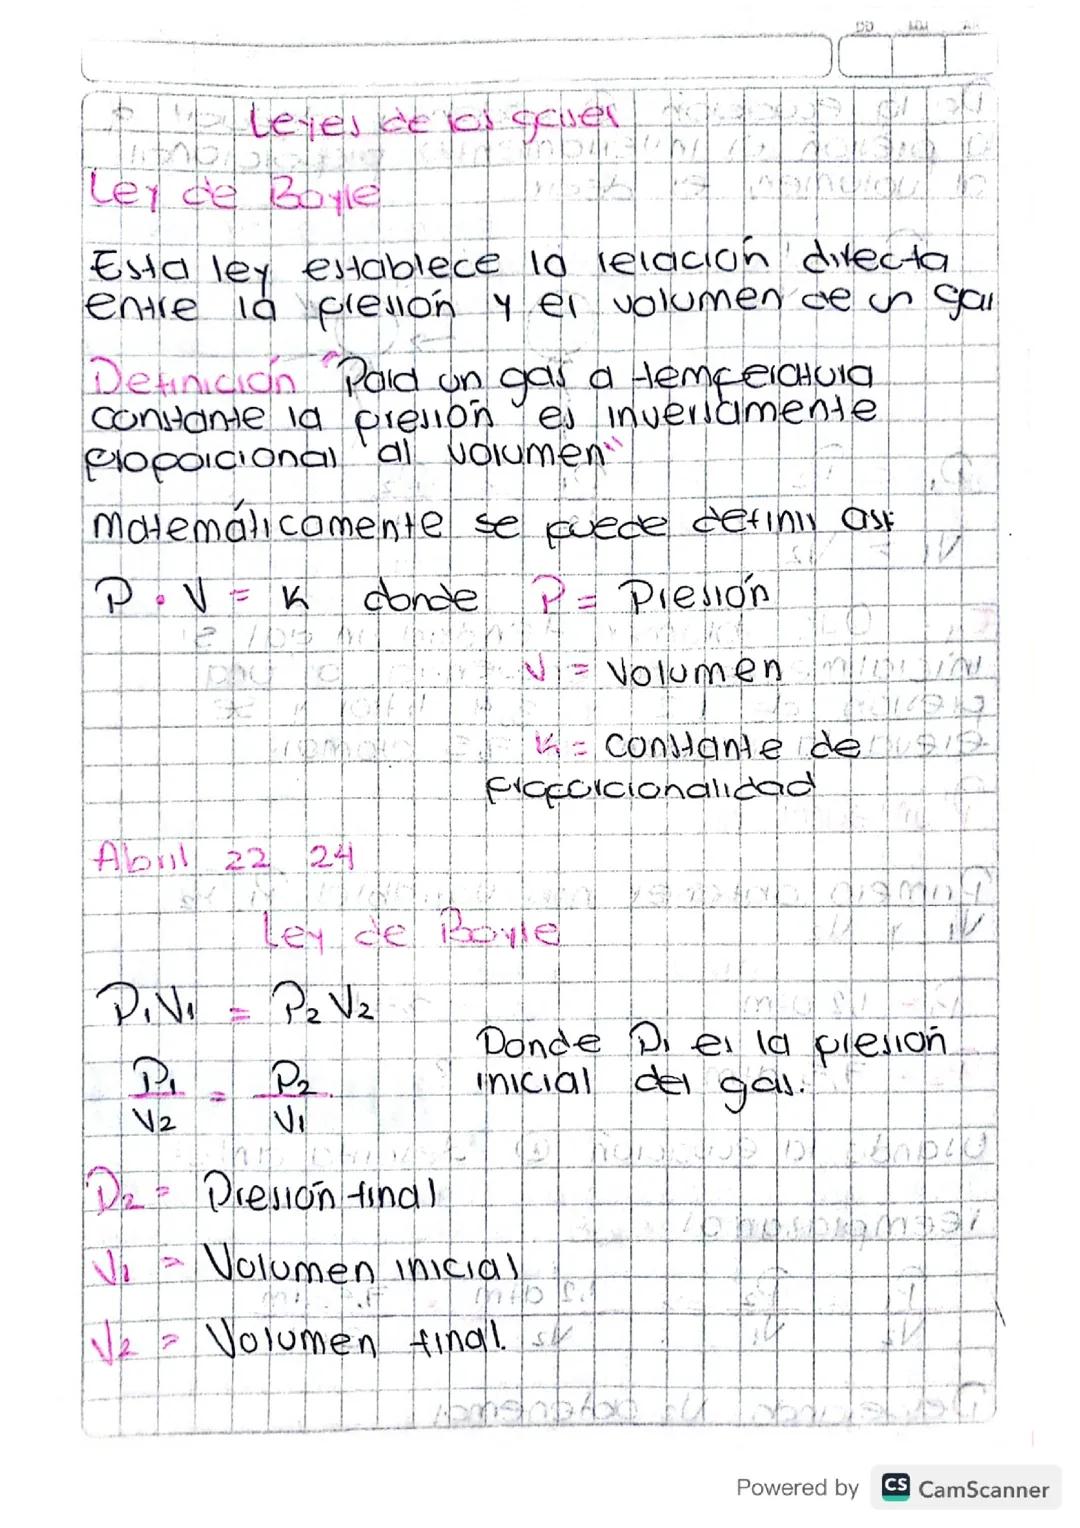 DD MM AA
Leyes de los gases
Ley de Boyle
Esta ley establece la relación directa
entre la presión y el volumen de un gas
Definición "Para un gas a temperatura
constante la presión es inversamente
proporcional al volumen"
Matemáticamente se puede definir así:
P • V = K donde P = Presión
V = Volumen
K = Constante de
proporcionalidad
Abril 22 24
Ley de Boyle
P₁V₁ = P₂V₂
Donde P₁ es la presión
inicial del gas.
P₁/V₂ = P₂/V₁
P₂ = Presión final
V₁ = Volumen inicial
V₂ = Volumen final.
Powered by CS CamScanner